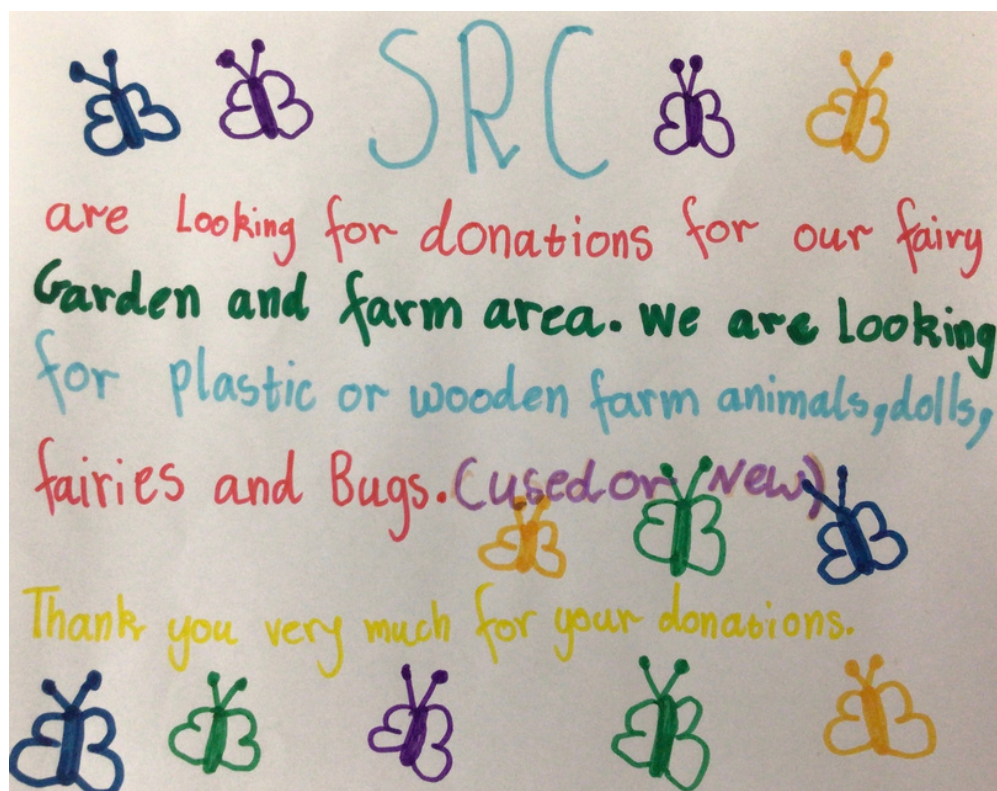 SRC
are Looking for donations for our fairy
Garden and farm area. We are Looking
for plastic or wooden farm animals, dolls,
fairies and Bugs. (used or New)
Thank you very much for your donations.